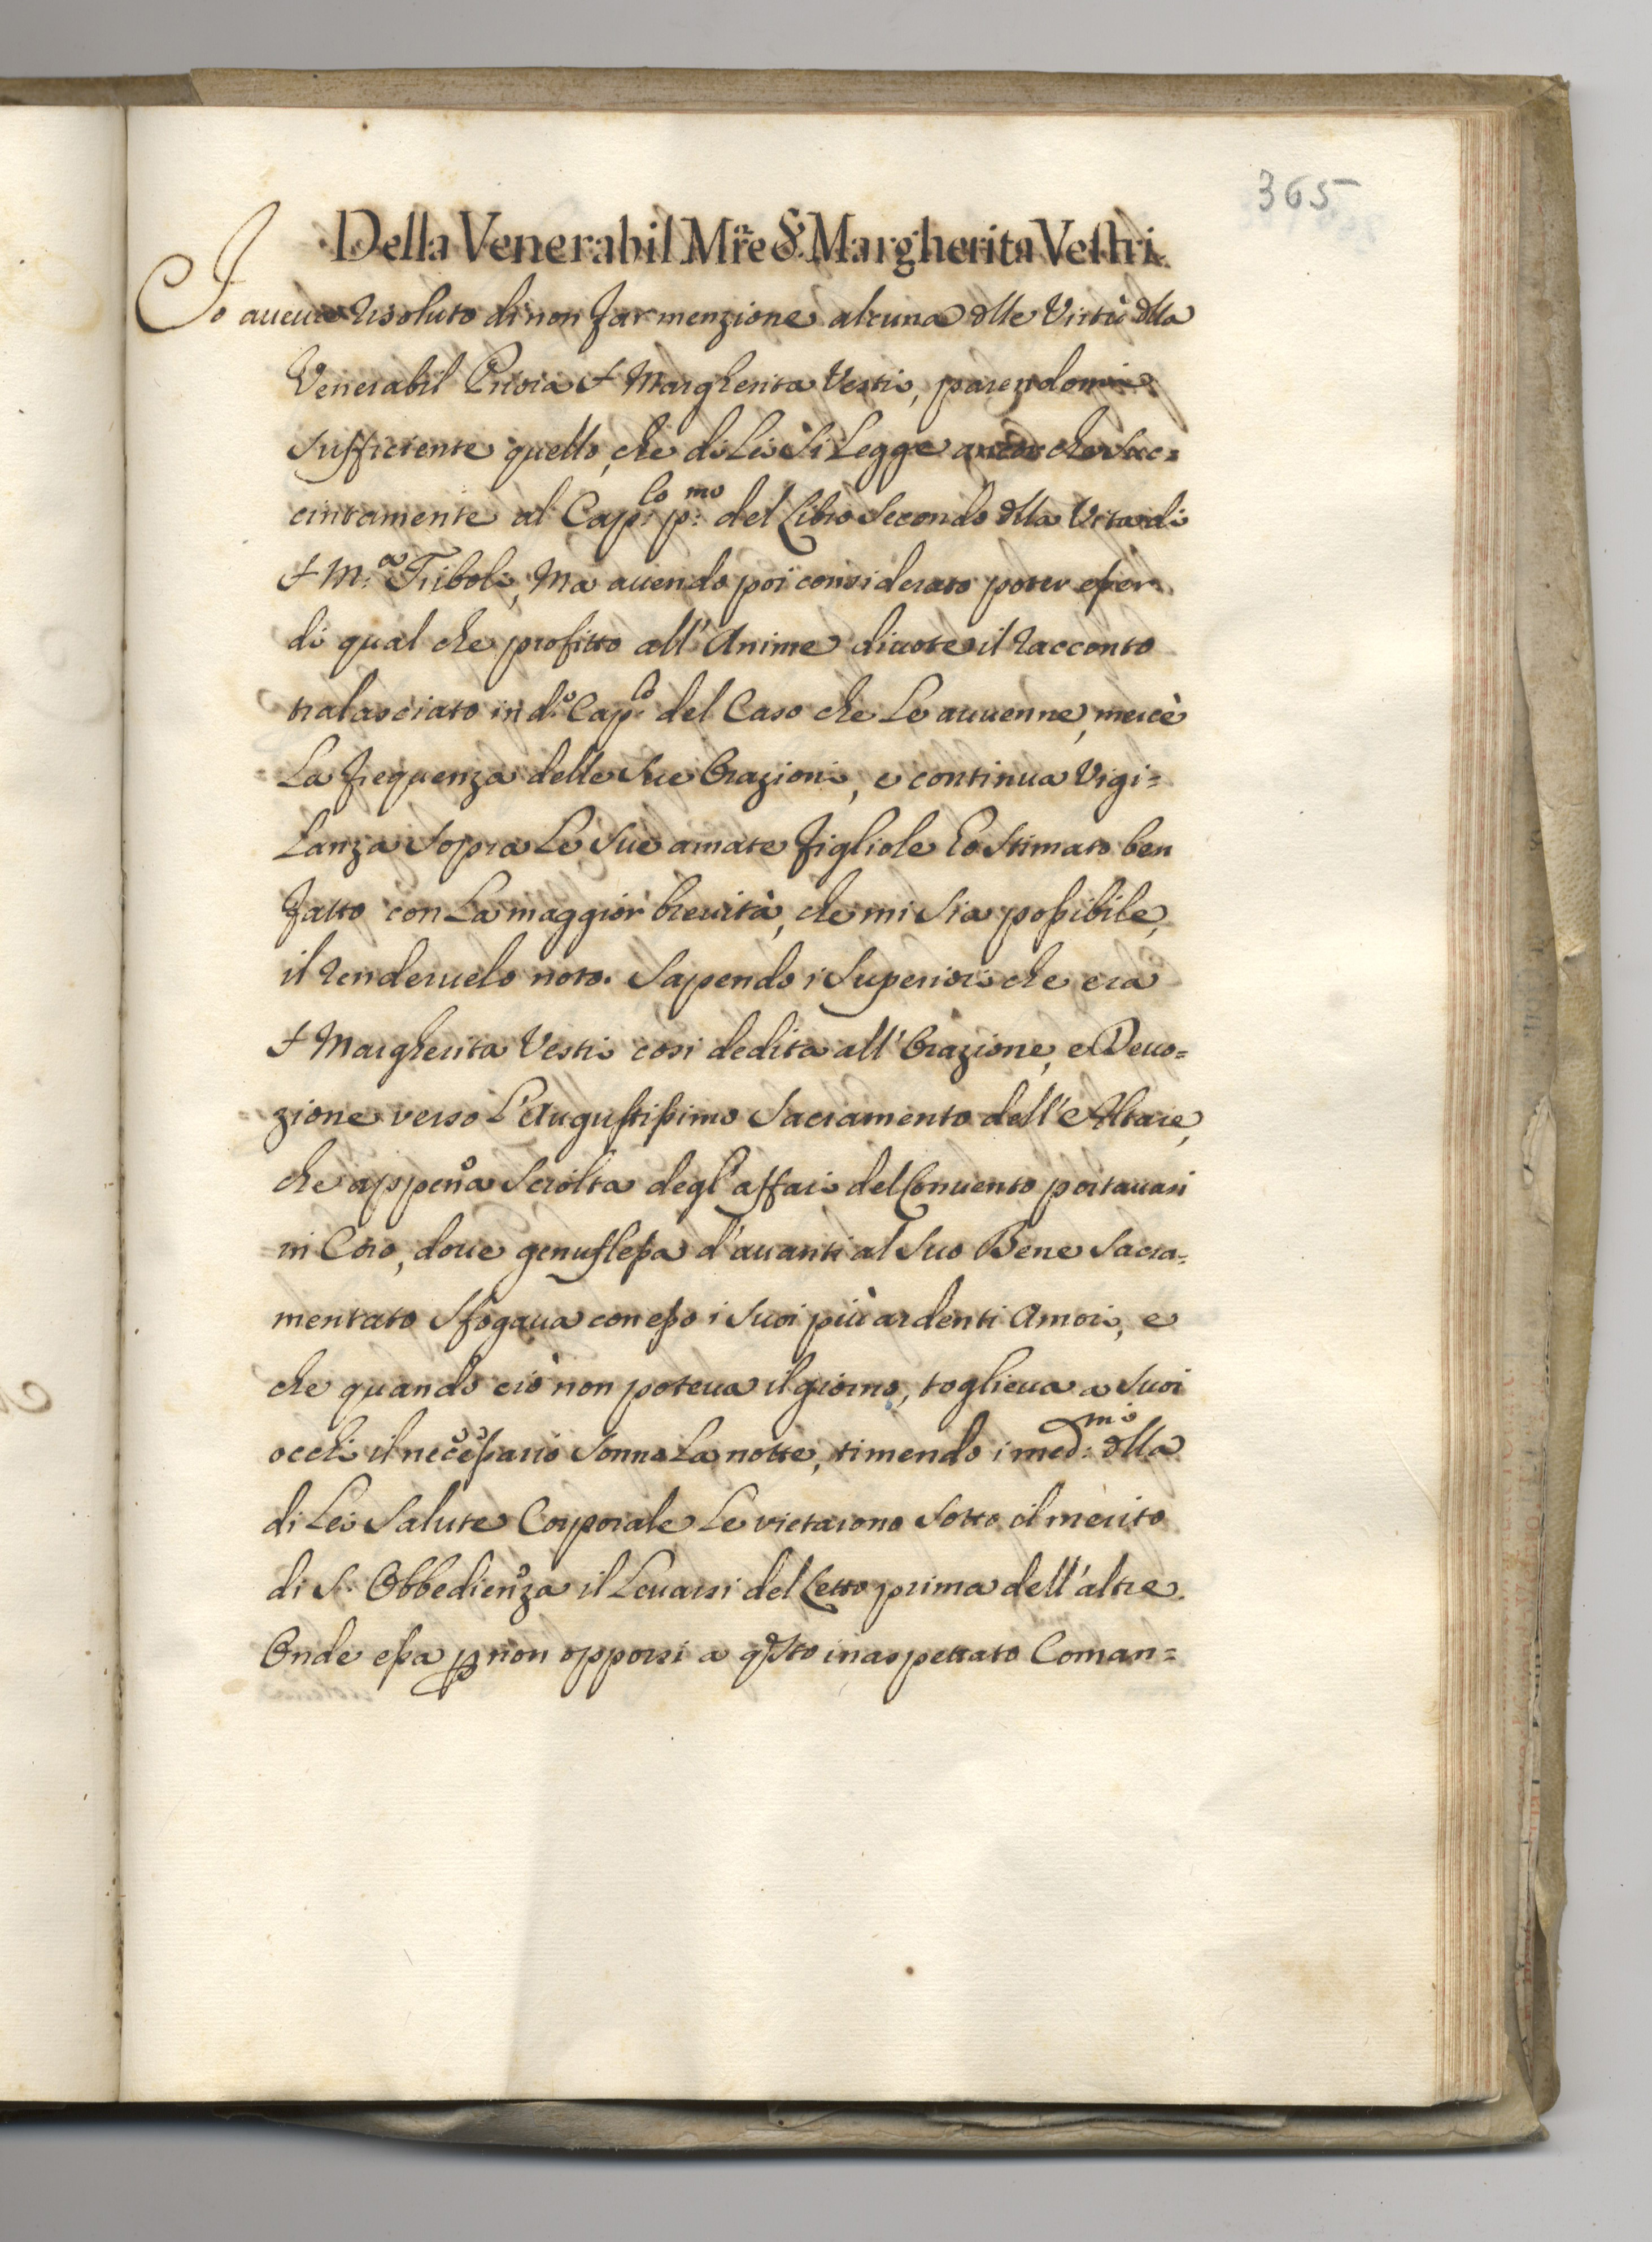 365
Della Venerabil Mře S: Margherita Vestri
Io aueua risoluto di non far menzione alcuna dlle Virtù dlla
Venerabil Priora S Margherita Vestri, parendomi
sufficiente quello, che di Lei si Legge ancor che suc=
cintamente al Cap:lo p:mo del Libro Secondo dlla Vita di
S M:a Triboli, Ma auendo poi considerato poter esser
di qual che profitto all'Anime diuote il racconto
tralasciato in d:o Cap:lo del Caso che Le auuenne, mercè
La frequenza delle Sue Orazioni, e continua Vigi=
Lanza sopra Le Sue amate figliole ho stimato ben
fatto con La maggior breuità, che mi sia possibile,
il renderuelo noto. Sapendo i Superiori che era
S Margherita Vestri così dedita all'Orazione, e Deuo=
zione verso L'Augustissimo Sacramento dell'Altare,
che appena sciolta degl'affari del Conuento portauasi
in Coro, doue genuflessa d'auanti al Suo Bene Sacra=
mentato sfogaua con esso i Suoi più ardenti Amori, e
che quando ciò non poteua il giorno, toglieua a Suoi
occhi il necessario sonno La notte, timendo i med:mi dlla
di Lei Salute Corporale Le vietarono sotto il merito
di S: Obbedienza il Leuarsi del Letto prima dell'altre.
Onde essa p non opporsi a qsto inaspettato Coman=